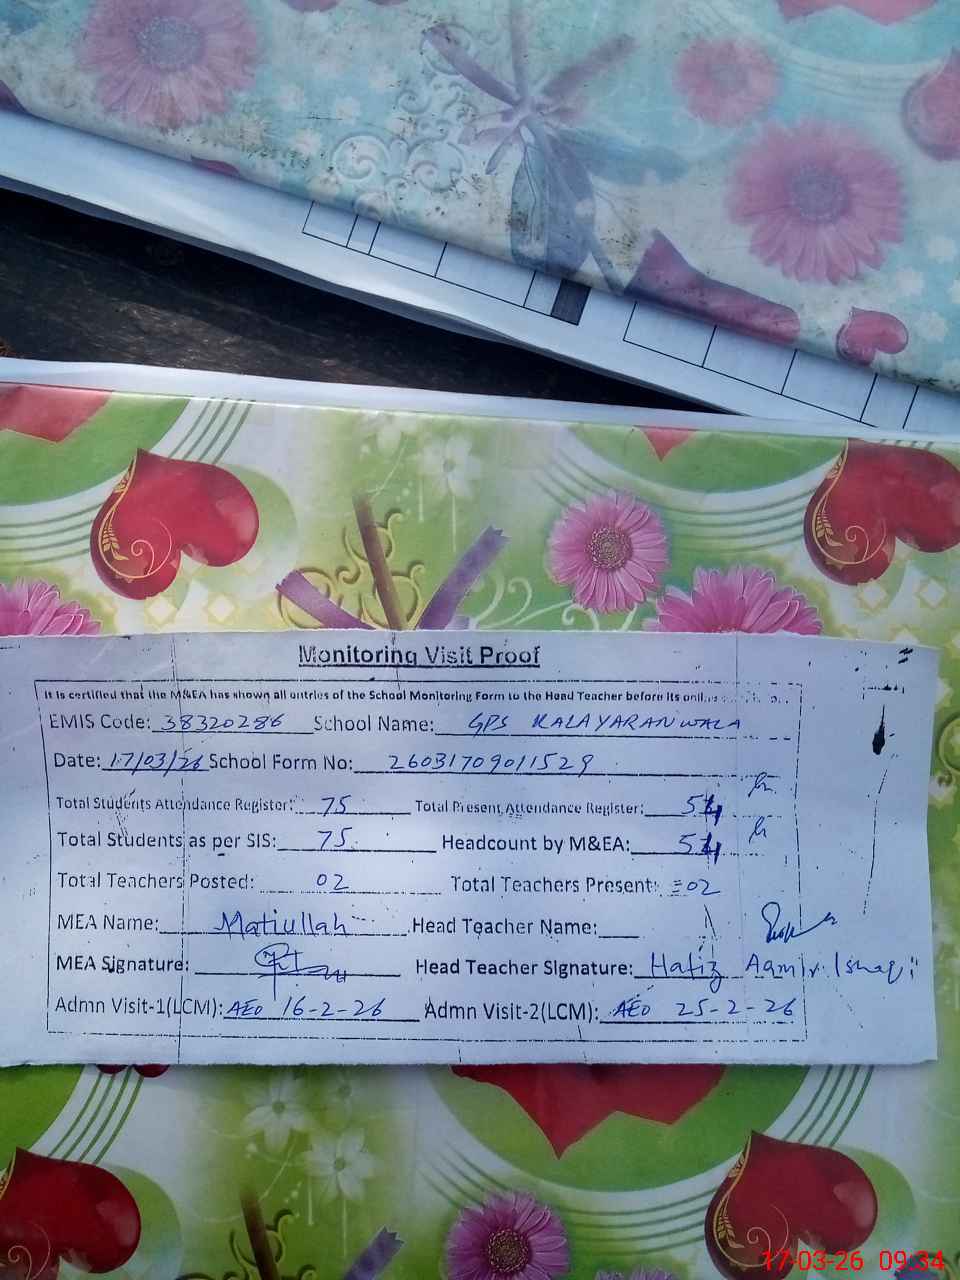 Monitoring Visit Proof
It is certified that the M&EA has shown all entries of the School Monitoring Form to the Head Teacher before its
EMIS Code: 38320286 School Name: GPS KALAYARANWALA
Date: 17/03/26 School Form No: 26031709011529
Total Students Attendance Register: 75 Total Present Attendance Register: 54
Total Students as per SIS: 75 Headcount by M&EA: 54
Total Teachers Posted: 02 Total Teachers Present: 02
MEA Name: Matiullah Head Teacher Name:
MEA Signature: Head Teacher Signature: Hafiz Aamir Ishaq
Admn Visit-1(LCM): AEO 16-2-26 Admn Visit-2(LCM): AEO 25-2-26
17-03-26 09:34